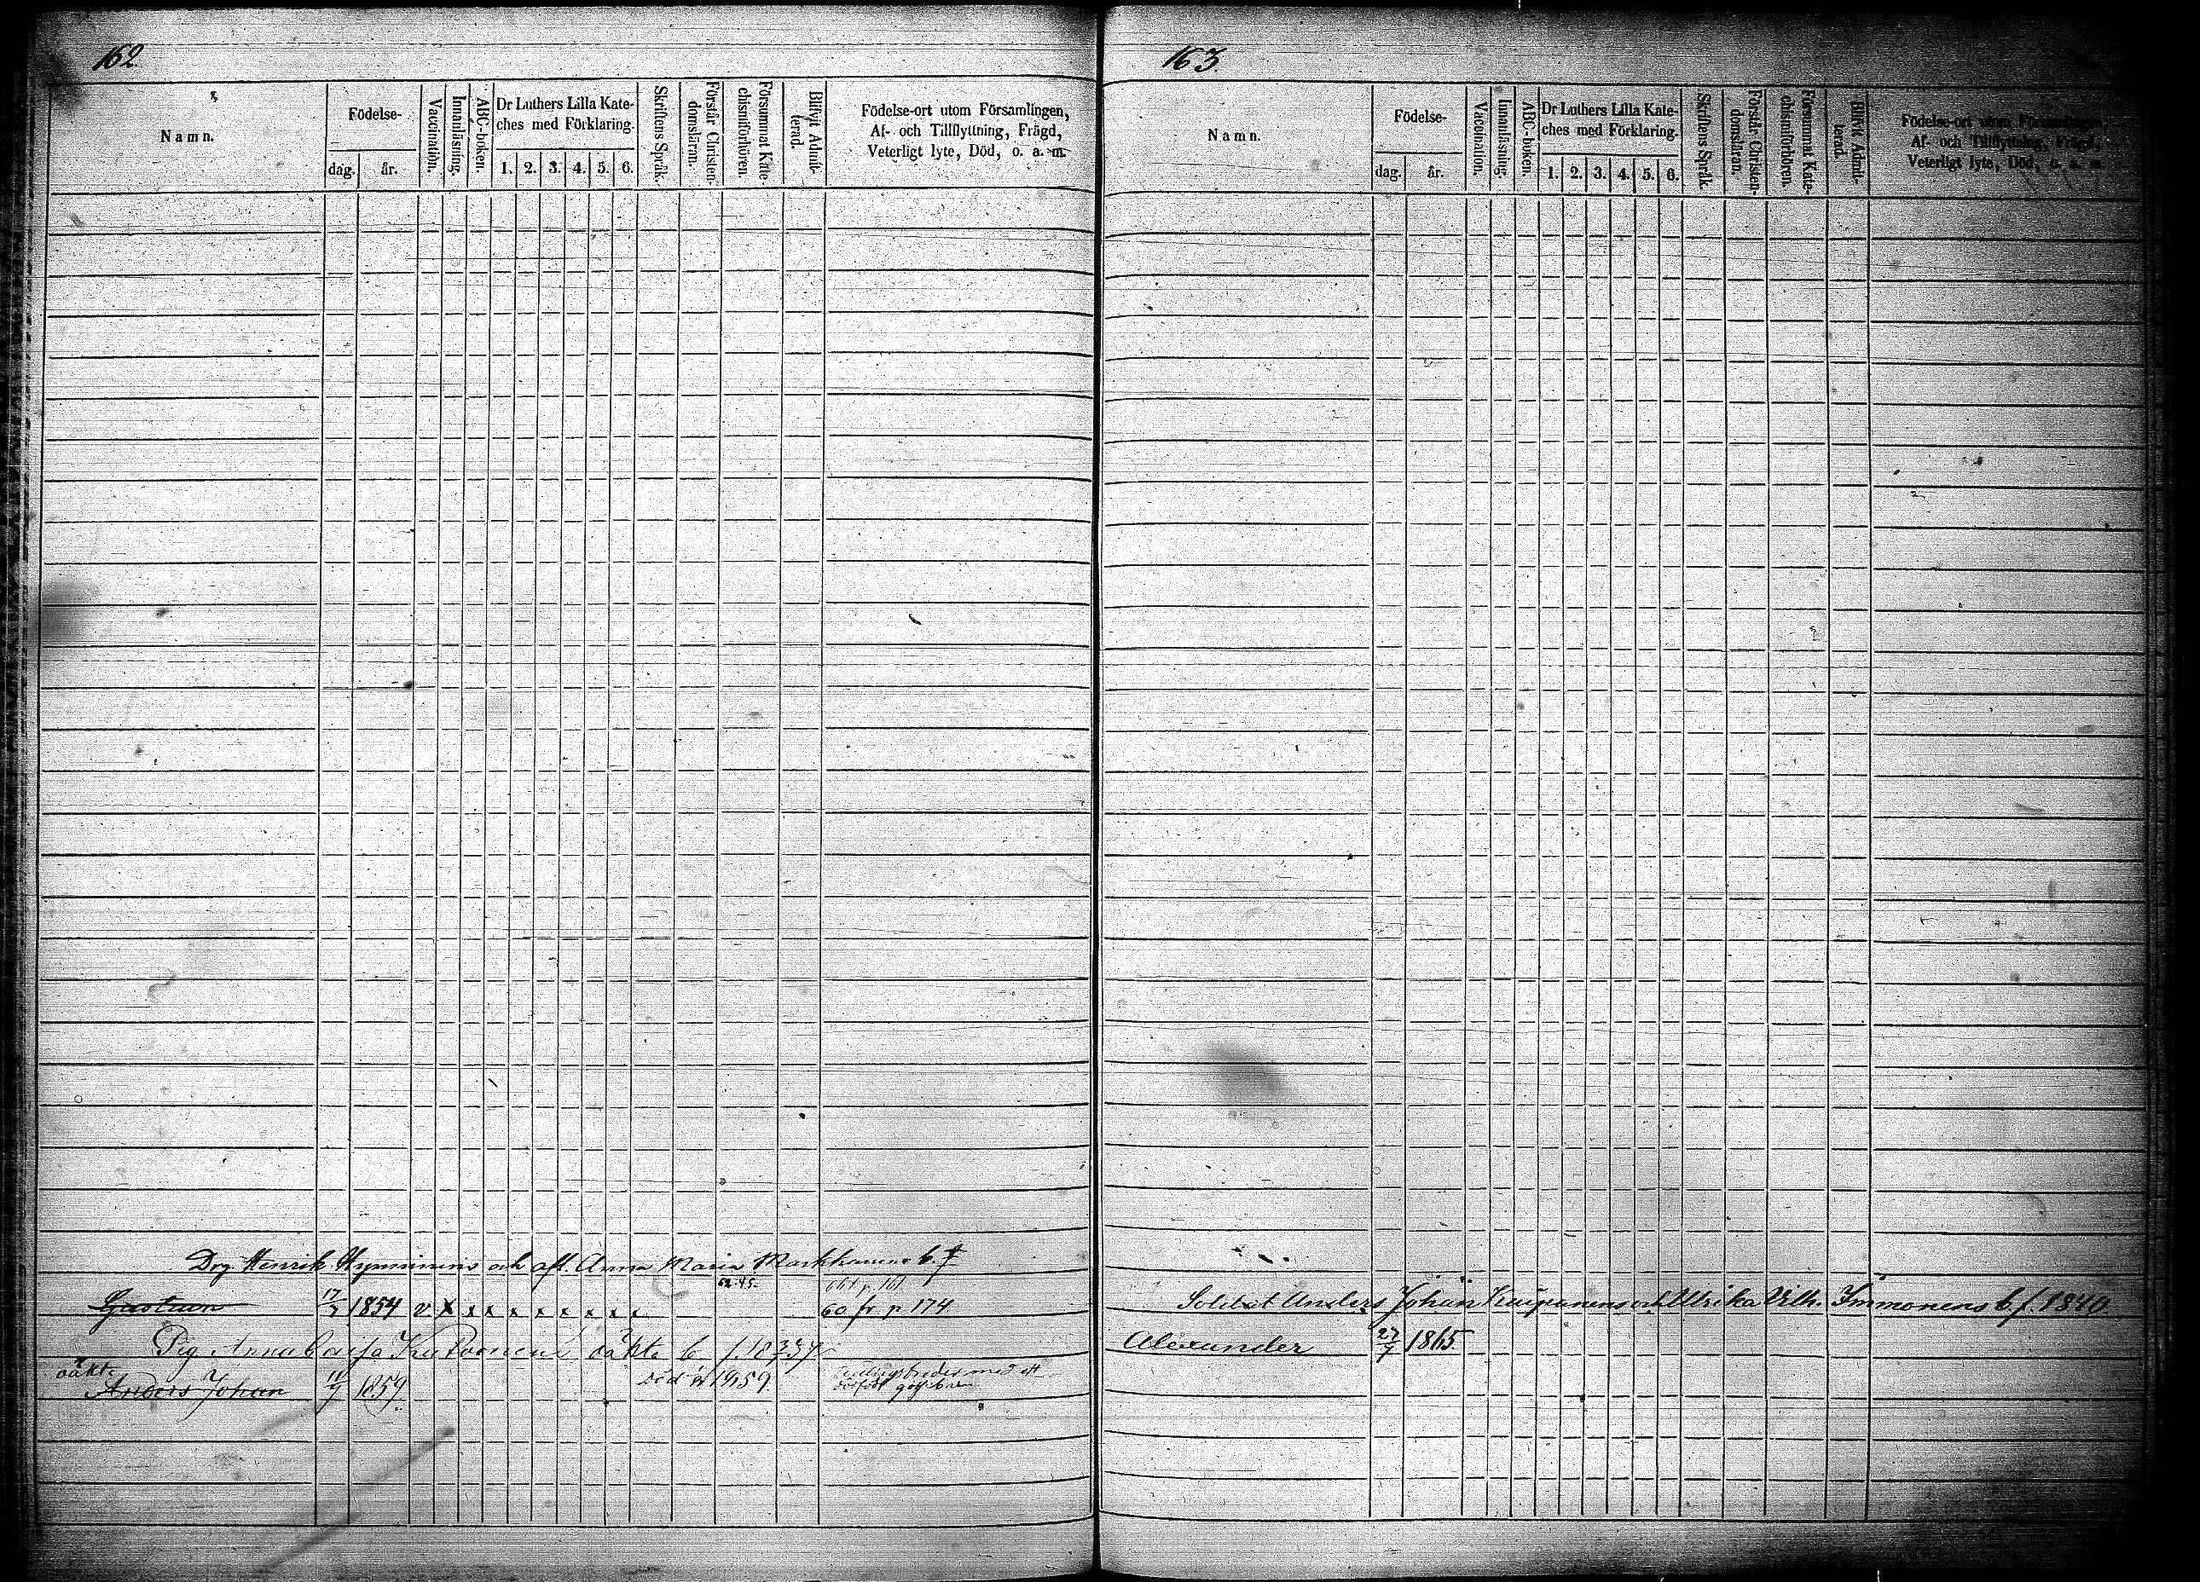 162.
Namn.
Födelse-
dag. år.
Vaccination.
Innanläsning.
ABC-boken.
Dr Luthers Lilla Kate-
ches med Förklaring.
1. 2. 3. 4. 5. 6.
Skriftens Språk.
Förstår Christen-
domsläran.
Försummat Kate-
chismiförhören.
Blifvit Admit-
terad.
Födelse-ort utom Församlingen,
Af- och Tillflyttning, Frägd,
Veterligt lyte, Död, o. a. m.
Drg. Henrik och afl. Anna Maria b. f
17/7 1854 v x x x x x x x x x 60 fr. p 174
Pig. Anna Caisa oäkta b
oäkt.
Anders Johan 1859 död 1859
163.
Namn.
Födelse-
dag. år.
Vaccination.
Innanläsning.
ABC-boken.
Dr Luthers Lilla Kate-
ches med Förklaring.
1. 2. 3. 4. 5. 6.
Skriftens Språk.
Förstår Christen-
domsläran.
Försummat Kate-
chismiförhören.
Blifvit Admit-
terad.
Födelse-ort utom Församlingen,
Af- och Tillflyttning, Frägd,
Veterligt lyte, Död, o. a. m.
Soldat Anders Johan Kaupanens och Ulrika Vilh. Immonens b f. 1840
Alexander 27/7 1865.